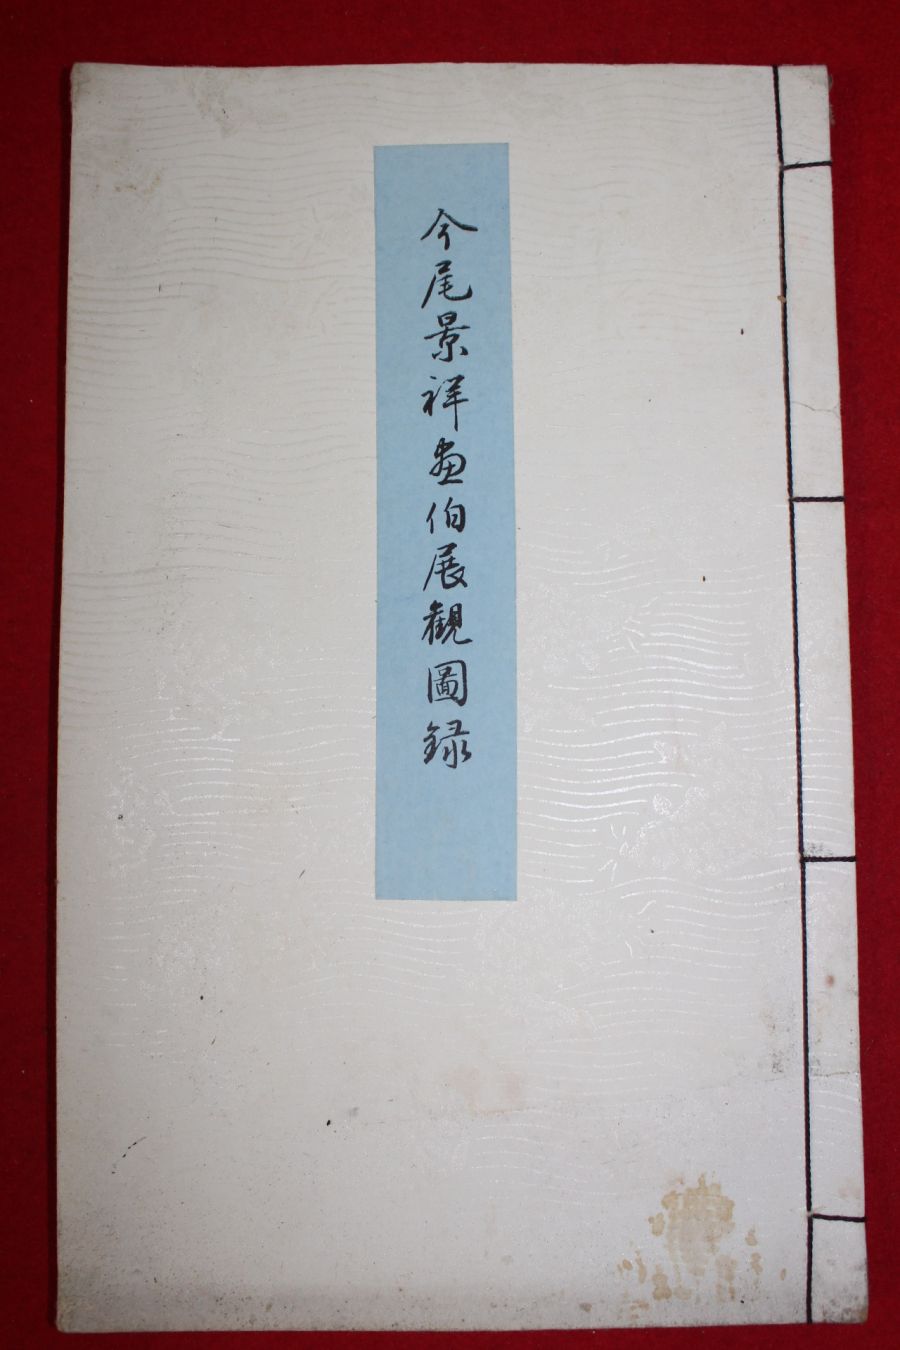 今尾景祥畫伯展観圖録